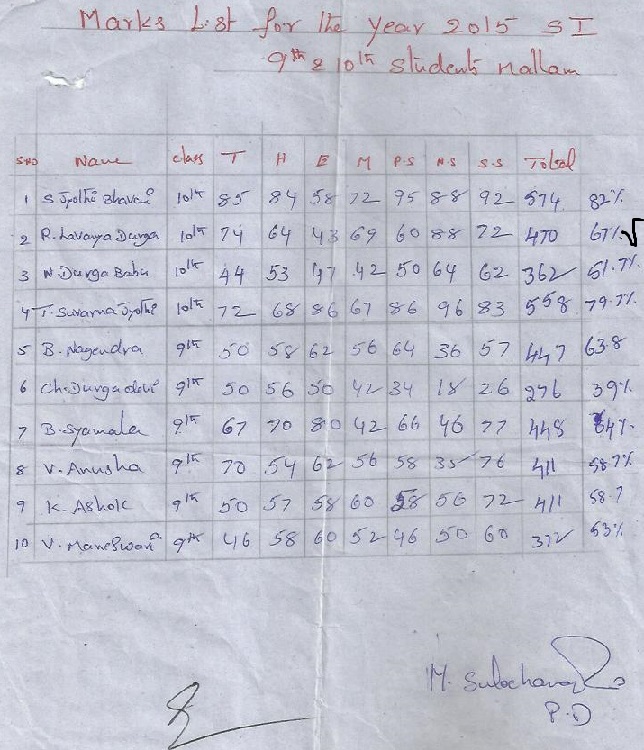 Marks List for the year 2015 S I
9th & 10th students Mallam
S.NO Name class T H E M P.S N.S S.S Total
1 S Jyothi Bhavani 10th 85 84 58 72 95 88 92 574 82%
2 R. Lavanya Durga 10th 74 64 43 69 60 88 72 470 67%
3 N Durga Babu 10th 44 53 47 42 50 64 62 362 51.7%
4 T. Suvarna Jyothi 10th 72 68 86 67 86 96 83 558 79.7%
5 B. Nagendra 9th 50 58 62 56 64 36 57 447 63.8
6 Ch. Durgadevi 9th 50 56 50 42 34 18 26 276 39%
7 B. Syamala 9th 67 70 80 42 66 46 77 448 64%
8 V. Anusha 9th 70 54 62 56 58 35 76 411 58.7%
9 K. Ashok 9th 50 57 58 60 58 56 72 411 58.7
10 V. Maneswari 9th 46 58 60 52 46 50 60 372 53%
M. Sulochana
P.D